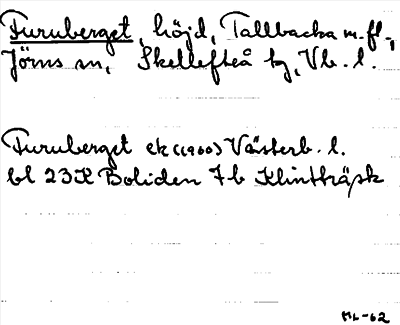 Furuberget, höjd, Tallbacka m.fl.,
Jörns sn, Skellefteå tg, Vb. l.
Furuberget ek (1960) Västerb. l.
bl 23K Boliden 7b Klintträsk
ML-62